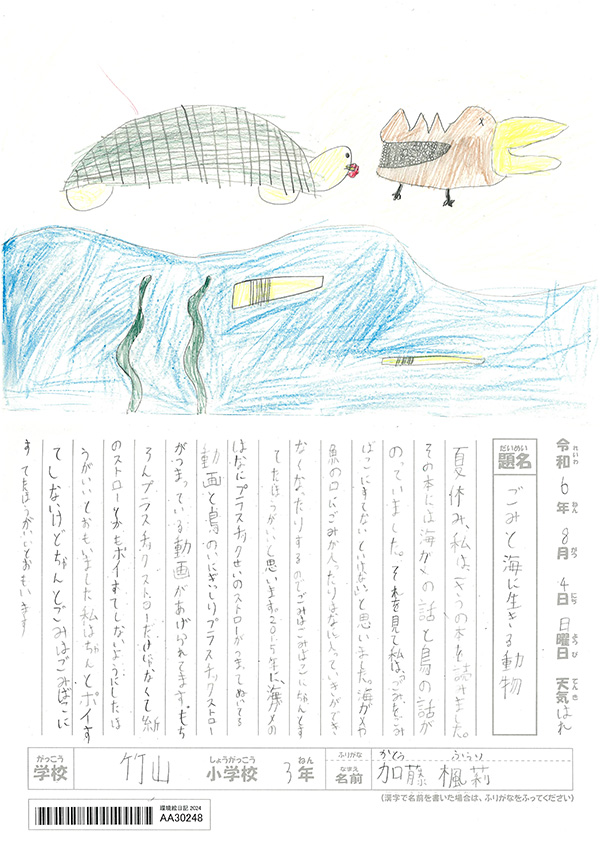 れいわ ねん がつ にち ようび てんき
令和6年8月4日 日曜日 天気 はれ
だいめい
題名 ごみと海に生きる動物
夏休み、私は、の本を読みました。
その本には海ガメの話と鳥の話が
のっていました。それを見て私は、ごみをごみ
ばこにすてないといけないと思いました。海ガメや
魚の口にごみが入ったりはなに入っていきができ
なくなったりするのでごみはごみばこにちゃんとす
てたほうがいいと思います。2015年に、海ガメの
はなにプラスチックせいのストローがつまってぬいてる
動画と鳥のいにぎっしりプラスチックストロー
がつまっている動画があげられてます。もち
ろんプラスチックストローだけじゃなくて紙
のストローとかもポイすてしないようにしたほ
うがいいとおもいました私はちゃんとポイす
てしないけどちゃんとごみはごみばこに
すてたほうがいいとおもいます
がっこう しょうがっこう ねん ふりがな かとう ふうり
学校 竹山 小学校 3年 なまえ 名前 加藤 楓莉
(漢字で名前を書いた場合は、ふりがなをふってください)
環境絵日記 2024
AA30248